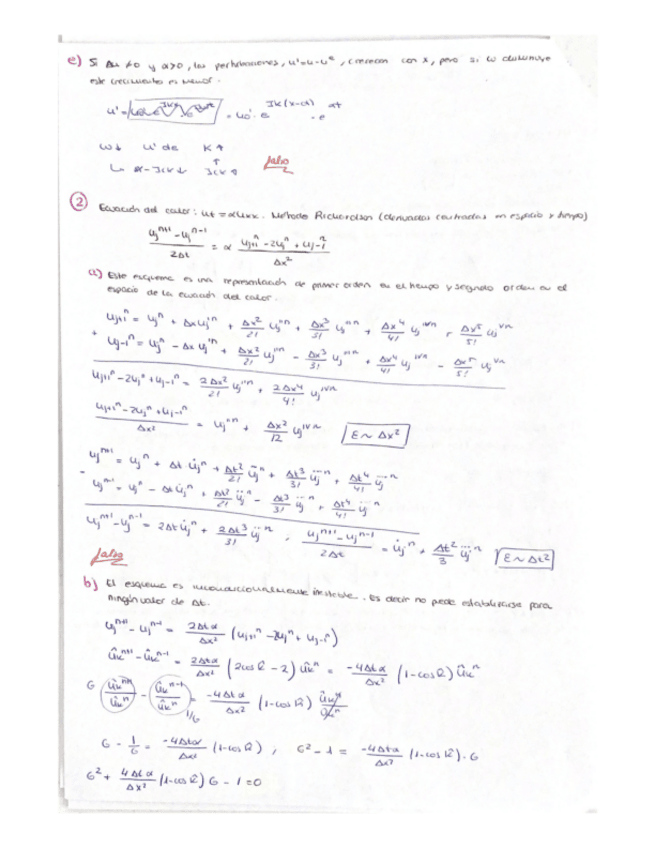 e) Si Δu ≠ 0 y α>0, las perturbaciones, u' = u - uˢ, crecerán con x, pero si ω disminuye
este crecimiento es menor.
= u₀' · e^{Ik(x-ct)} · e^{αt}
ω↓ u' de k↑
falso
② Ecuación del calor: ut = αuxx. Método Richardson (derivadas centradas en espacio y tiempo)
(uj^{n+1} - uj^{n-1}) / 2Δt = α (uj+1^n - 2uj^n + uj-1^n) / Δx²
a) Este esquema es una representación de primer orden en el tiempo y segundo orden en el
espacio de la ecuación del calor.
uj+1^n = uj^n + Δx uj'^n + Δx²/2! uj''^n + Δx³/3! uj'''^n + Δx⁴/4! uj^{IV n} + Δx⁵/5! uj^{V n}
+ uj-1^n = uj^n - Δx uj'^n + Δx²/2! uj''^n - Δx³/3! uj'''^n + Δx⁴/4! uj^{IV n} - Δx⁵/5! uj^{V n}
uj+1^n - 2uj^n + uj-1^n = 2Δx²/2! uj''^n + 2Δx⁴/4! uj^{IV n}
(uj+1^n - 2uj^n + uj-1^n) / Δx² = uj''^n + Δx²/12 uj^{IV n} ε ~ Δx²
uj^{n+1} = uj^n + Δt u̇j^n + Δt²/2! üj^n + Δt³/3! u⃛j^n + Δt⁴/4! u⃜j^n
- uj^{n-1} = uj^n - Δt u̇j^n + Δt²/2! üj^n - Δt³/3! u⃛j^n + Δt⁴/4! u⃜j^n
uj^{n+1} - uj^{n-1} = 2Δt u̇j^n + 2Δt³/3! u⃛j^n , (uj^{n+1} - uj^{n-1}) / 2Δt = u̇j^n + Δt²/3 u⃛j^n ε ~ Δt²
falso
b) El esquema es incondicionalmente inestable. Es decir no puede estabilizarse para
ningún valor de Δt.
uj^{n+1} - uj^{n-1} = 2Δtα/Δx² (uj+1^n - 2uj^n + uj-1^n)
ûk^{n+1} - ûk^{n-1} = 2Δtα/Δx² (2cos k̂ - 2) ûk^n = -4Δtα/Δx² (1 - cos k̂) ûk^n
G ûk^{n+1}/ûk^n - ûk^{n-1}/ûk^n 1/G = -4Δtα/Δx² (1 - cos k̂) ûk^n/ûk^n
G - 1/G = -4Δtα/Δx² (1 - cos k̂) , G² - 1 = -4Δtα/Δx² (1 - cos k̂) · G
G² + 4Δtα/Δx² (1 - cos k̂) G - 1 = 0